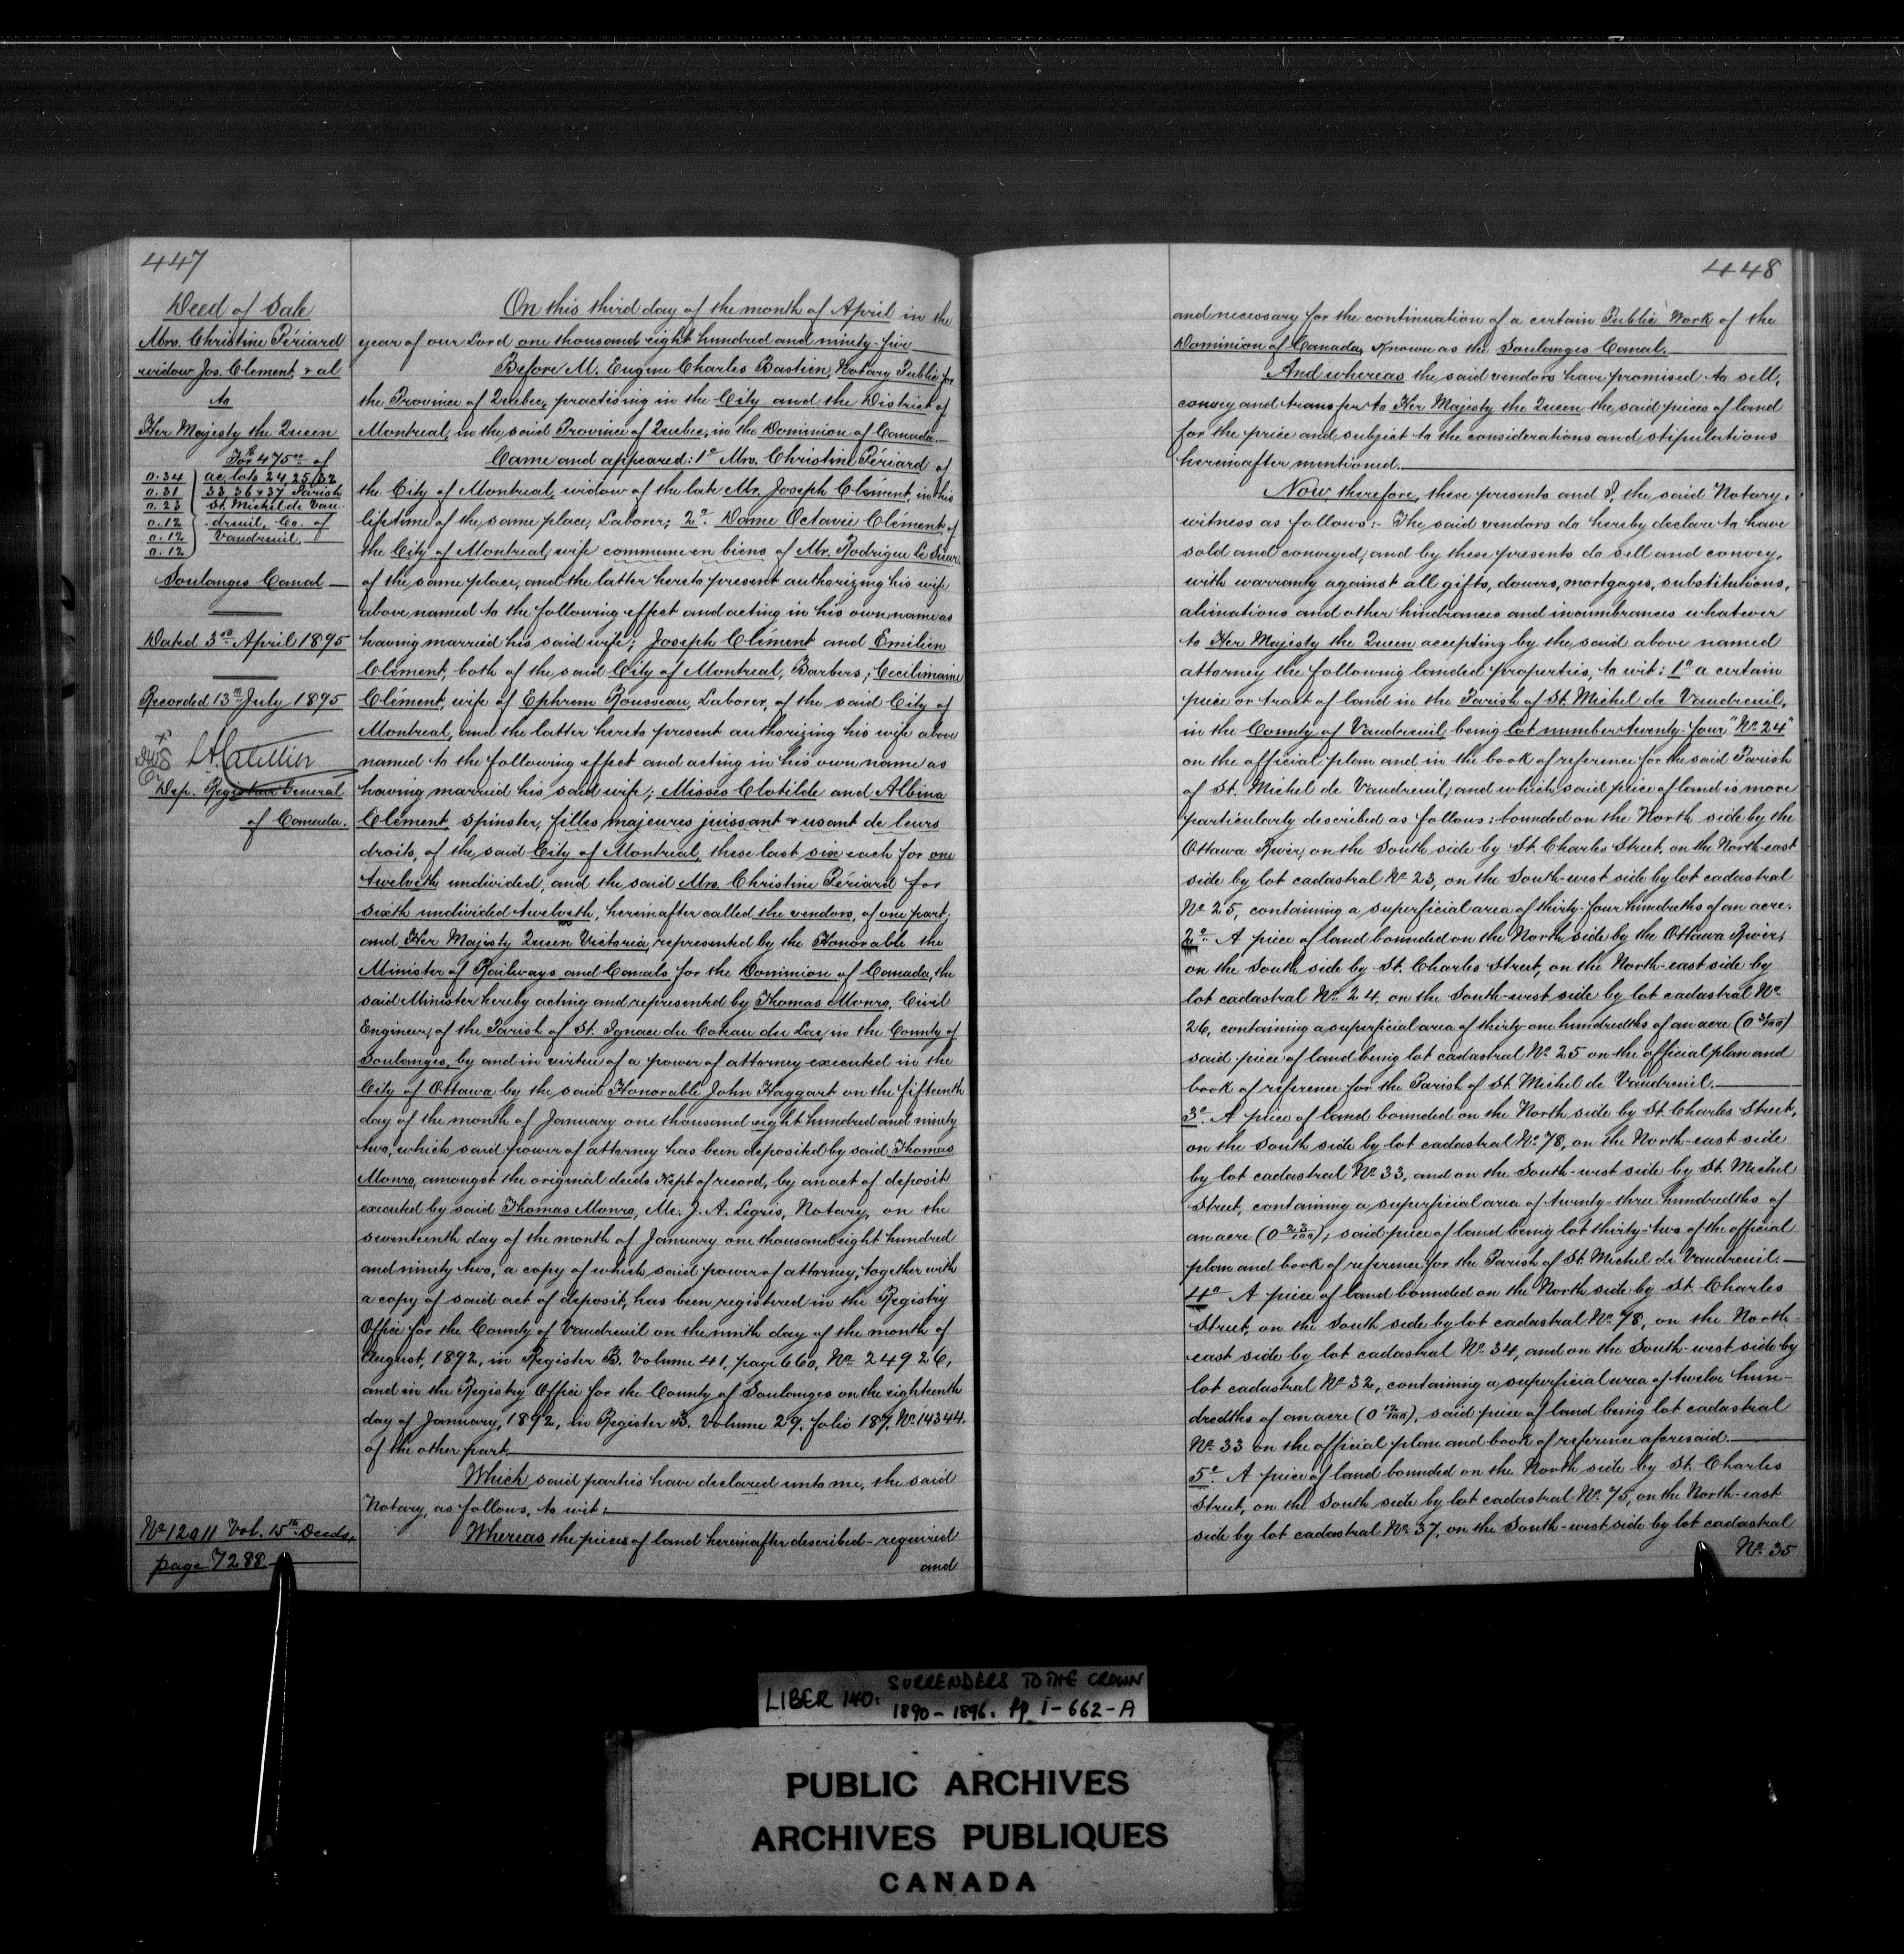 447
Deed of Sale
Mrs. Christine Périard
widow Jos. Clement, & al
to
Her Majesty the Queen
For $475.00 of
0.34 ac, lots 24, 25, 32
0.31 33, 36 & 37 Parish
0.23 St. Michel de Vau-
0.12 dreuil, Co. of
0.12 Vaudreuil.
0.12
Soulanges Canal
Dated 3rd April 1895
Recorded 13th July 1895
Dep. Registrar General
of Canada.
No 12011 Vol. 15th Deeds,
page 7288
On this third day of the month of April in the
year of our Lord one thousand eight hundred and ninety-five
Before M. Eugene Charles Bastien, Notary Public for
the Province of Quebec, practising in the City and the District of
Montreal, in the said Province of Quebec, in the Dominion of Canada.
Came and appeared: 1o Mrs. Christine Périard of
the City of Montreal, widow of the late Mr. Joseph Clément, in his
lifetime of the same place, Laborer; 2o. Dame Octavie Clément, of
the City of Montreal, wife commune en biens of Mr. Rodrigue Le Sieur,
of the same place, and the latter hereto present authorizing his wife
above named to the following effect and acting in his own name as
having married his said wife; Joseph Clément and Emilien
Clément, both of the said City of Montreal, Barbers; Ceciliminaine
Clément, wife of Ephrem Rousseau, Laborer, of the said City of
Montreal, and the latter hereto present authorizing his wife above
named to the following effect and acting in his own name as
having married his said wife; Misses Clotilde and Albina
Clément, spinster, filles majeures juissant & usant de leurs
droits, of the said City of Montreal, these last six each for one
twelveth undivided, and the said Mrs. Christine Périard for
sixth undivided twelveth, hereinafter called the vendors, of one part;
and Her Majesty Queen Victoria, represented by the Honorable the
Minister of Railways and Canals for the Dominion of Canada, the
said Minister hereby acting and represented by Thomas Monro, Civil
Engineer, of the Parish of St. Ignace du Coteau du Lac, in the County of
Soulanges, by and in virtue of a power of attorney executed in the
City of Ottawa by the said Honorable John Haggart on the fifteenth
day of the month of January one thousand eight hundred and ninety
two, which said power of attorney has been deposited by said Thomas
Monro, amongst the original deeds Kept of record, by an act of deposit
executed by said Thomas Monro, Me. J. A. Legris, Notary, on the
seventeenth day of the month of January one thousand eight hundred
and ninety two, a copy of which said power of attorney, together with
a copy of said act of deposit, has been registered in the Registry
Office for the County of Vaudreuil on the ninth day of the month of
August, 1892, in Register B. Volume 41, page 660, No. 24926,
and in the Registry Office for the County of Soulanges on the eighteenth
day of January, 1892, in Register B. Volume 29, folio 187, No. 14344.
of the other part.
Which said parties have declared unto me, the said
Notary, as follows, to wit:
Whereas the pieces of land hereinafter described - required
and
448
and necessary for the continuation of a certain Public Work of the
Dominion of Canada, Known as the Soulanges Canal.
And whereas the said vendors have promised to sell,
convey and transfer to Her Majesty the Queen the said pieces of land
for the price and subject to the considerations and stipulations
hereinafter mentioned.
Now therefore, these presents and I, the said Notary,
witness as follows:- The said vendors do hereby declare to have
sold and conveyed, and by these presents do sell and convey,
with warranty against all gifts, dowers, mortgages, substitutions,
alienations and other hindrances and incumbrances whatever
to Her Majesty the Queen accepting by the said above named
attorney the following landed properties, to wit: 1o a certain
piece or tract of land in the Parish of St. Michel de Vaudreuil,
in the County of Vaudreuil, being lot number twenty-four "No 24"
on the official plan and in the book of reference for the said Parish
of St. Michel de Vaudreuil, and which said piece of land is more
particularly described as follows: bounded on the North side by the
Ottawa River, on the South side by St. Charles Street, on the North east
side by lot cadastral No. 23, on the South-west side by lot cadastral
No 25, containing a superficial area of thirty-four hundreths of an acre.
2o. A piece of land bounded on the North side by the Ottawa River,
on the South side by St. Charles Street, on the North-east side by
lot cadastral No. 24, on the South-west side by lot cadastral No.
26, containing a superficial area of thirty-one hundredths of an acre (0 31/100)
said piece of land being lot cadastral No. 25 on the official plan and
book of reference for the Parish of St. Michel de Vaudreuil.
3o. A piece of land bounded on the North side by St. Charles Street,
on the South side by lot cadastral No. 78, on the North-east side
by lot cadastral No. 33, and on the South-west side by St. Michel
Street, containing a superficial area of twenty-three hundredths of
an acre (0 23/100); said piece of land being lot thirty-two of the official
plan and book of reference for the Parish of St. Michel de Vaudreuil.
4o A piece of land bounded on the North side by St. Charles
Street, on the South side by lot cadastral No. 78, on the North-
east side by lot cadastral No. 34, and on the South-west side by
lot cadastral No. 32, containing a superficial area of twelve hun-
dredths of an acre (0 12/100), said piece of land being lot cadastral
No. 33 on the official plan and book of reference aforesaid.
5o. A piece of land bounded on the North side by St. Charles
Street, on the South side by lot cadastral No. 75, on the North-east
side by lot cadastral No. 37, on the South-west side by lot cadastral
No. 35
LIBER 140: SURRENDERS TO THE CROWN
1890-1896. pp I-662-A
PUBLIC ARCHIVES
ARCHIVES PUBLIQUES
CANADA